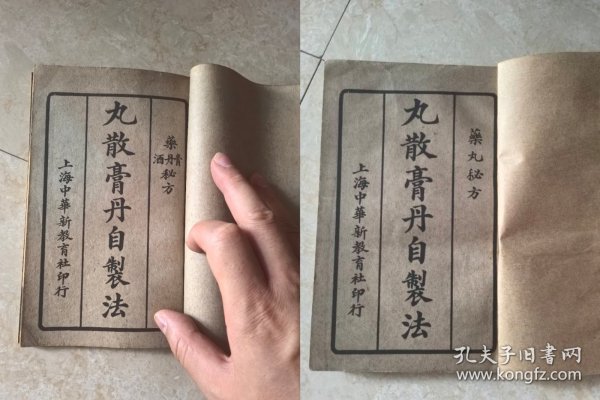 藥膏丹酒秘方
丸散膏丹自製法
上海中華新教育社印行
藥丸秘方
丸散膏丹自製法
上海中華新教育社印行
孔夫子旧書网
www.kongfz.com